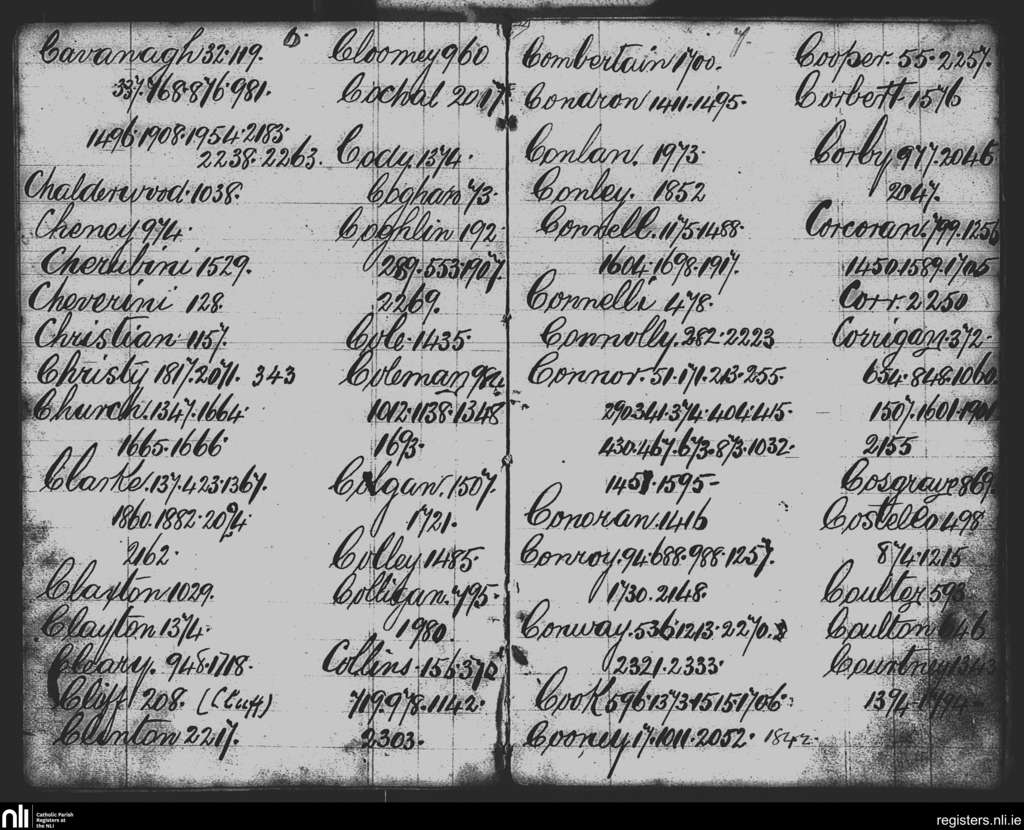 6.
Cavanagh 32·119.
337·768·876·981.
1496·1908·1954·2183·
2238·2263.
Chalderwood·1038.
Cheney 974·
Cherubini 1529.
Cheverini 128.
Christian·1157.
Christy 1817.2071. 343
Church.1347.1664·
1665·1666·
Clarke.137.423·1367.
1860.1882·2094·
2162·
Claxton.1029.
Clayton 1374·
Cleary. 948·1718·
Clift 208. (Cluff)
Clinton 2217.
Cloomey 960
Cochal 2017
Cody.1374·
Coghan 73·
Coghlin 192·
289·553·1907.
2269.
Cole·1435·
Coleman 984
1012·1138·1348
1693·
Colgan.1507.
1721.
Colley 1485·
Colligan.795·
1980
Collins·156·370
719.978.1142·
2303·
7.
Combertain 1700.
Condron 1411·1495·
Conlan. 1973·
Conley. 1852
Connell.1175·1488·
1604·1698·1917.
Connelli 478·
Connolly.282·2223
Connor.51.171.213·255.
290.341.374·404.415.
430.467.673.873.1032·
1451·1595-
Conoran.1416
Conroy.94.688.988.1257.
1730.2148.
Conway.536.1213·2270.
2321.2333·
Cook 596·1373·1515·1706·
Cooney 17.1011.2052. 1842·
Cooper. 55·2257.
Corbett 1576
Corby 977.2046
2047.
Corcoran.799.1256
1450·1589·1705
Corr.2250
Corrigan.372·
654·848·1060.
1507.1601.1901
2155
Cosgrave 869
Costello 498
874·1215
Coulter 593
Coulton 646
Courtney 1343
1394·1794·
nli
Catholic Parish
Registers at
the NLI
registers.nli.ie